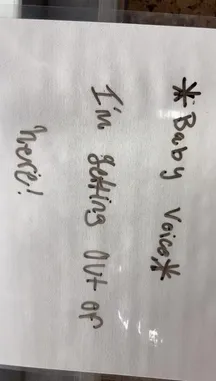 *Baby Voice*
I'm getting out of
here!